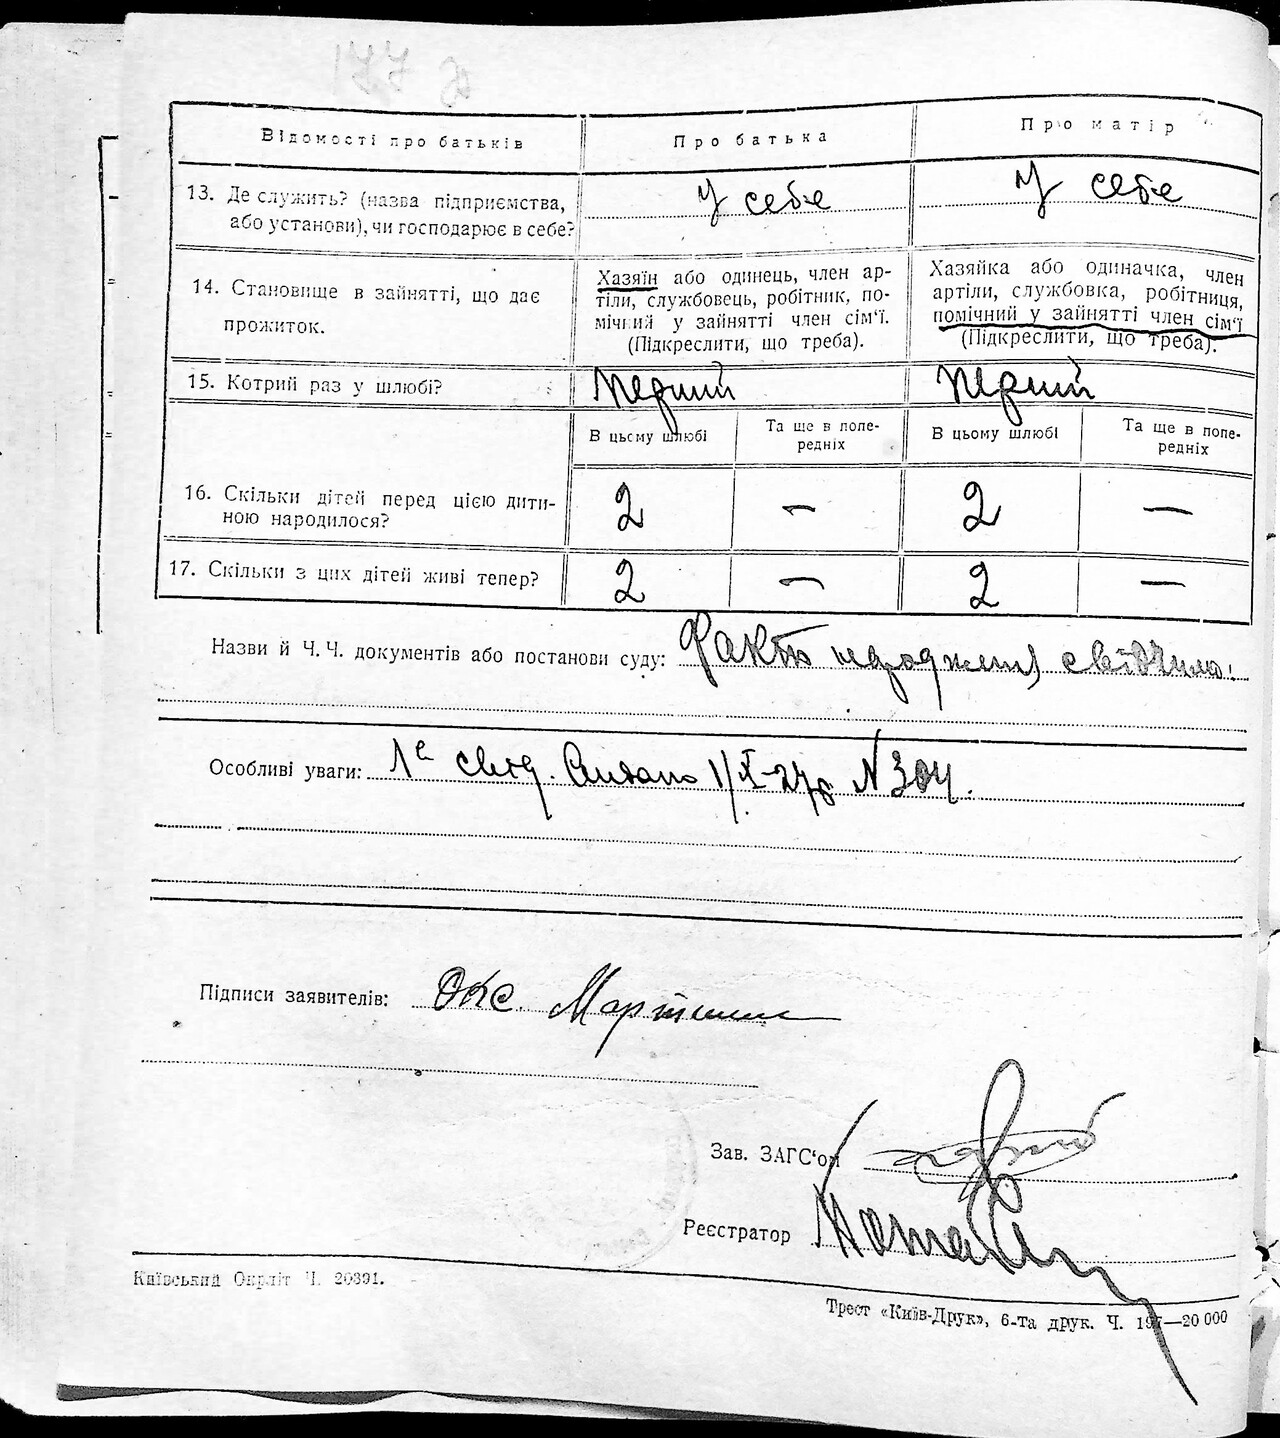 177
Відомості про батьків
Про батька
Про матір
13. Де служить? (назва підприємства,
або установи), чи господарює в себе?
У себе
У себе
14. Становище в зайнятті, що дає
прожиток.
Хазяїн або одинець, член ар-
тіли, службовець, робітник, по-
мічний у зайнятті член сім'ї.
(Підкреслити, що треба).
Хазяйка або одиначка, член
артіли, службовка, робітниця,
помічний у зайнятті член сім'ї
(Підкреслити, що треба).
15. Котрий раз у шлюбі?
Перший
Перший
В цьому шлюбі
Та ще в попе-
редніх
В цьому шлюбі
Та ще в попе-
редніх
16. Скільки дітей перед цією дити-
ною народилося?
2
—
2
—
17. Скільки з цих дітей живі тепер?
2
—
2
—
Назви й Ч. Ч. документів або постанови суду:
Особливі уваги: свід. Видано 1/X-27р N 304.
Підписи заявителів: Окс.
Зав. ЗАГС'ом
Реєстратор
Київський Окрліт Ч. 20391.
Трест «Київ-Друк», 6-та друк. Ч. 197—20 000